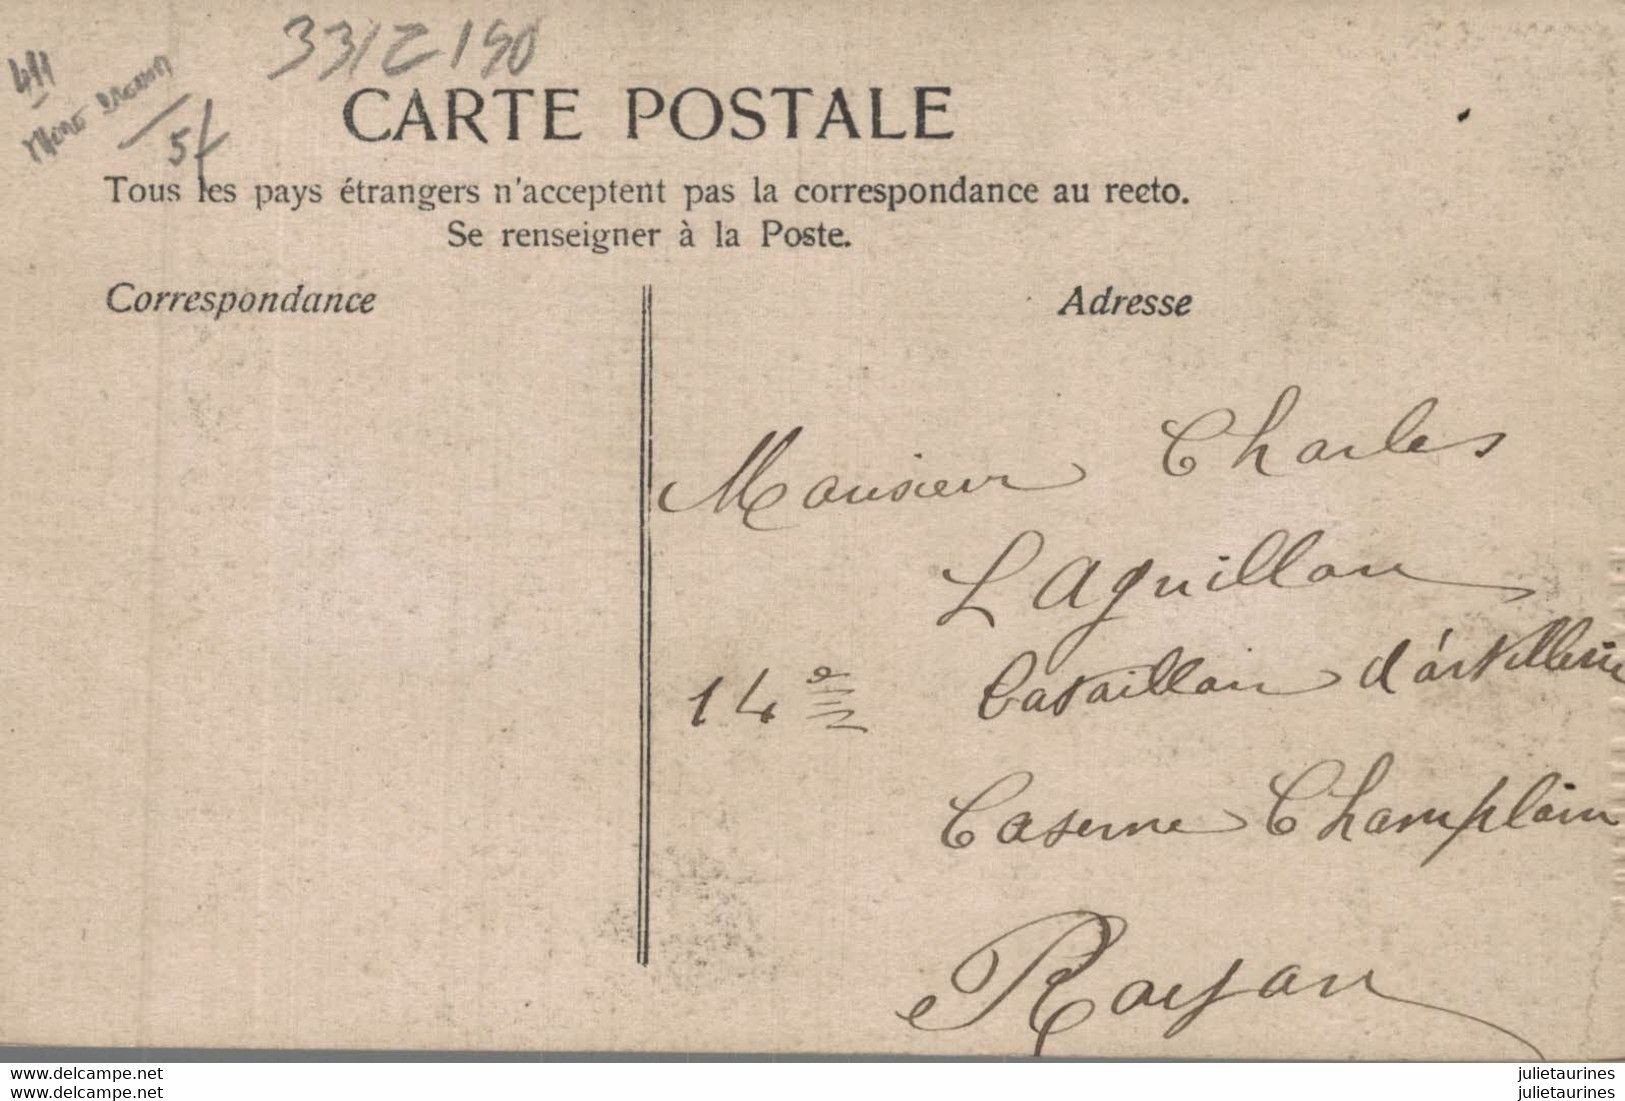 33/Z/50
411
5f
CARTE POSTALE
Tous les pays étrangers n'acceptent pas la correspondance au recto.
Se renseigner à la Poste.
Correspondance
Adresse
Monsieur Charles
Laguillon
14ème bataillon d'artillerie
Caserne Champlain
Royan
www.delcampe.net
www.delcampe.net
julietaurines
julietaurines